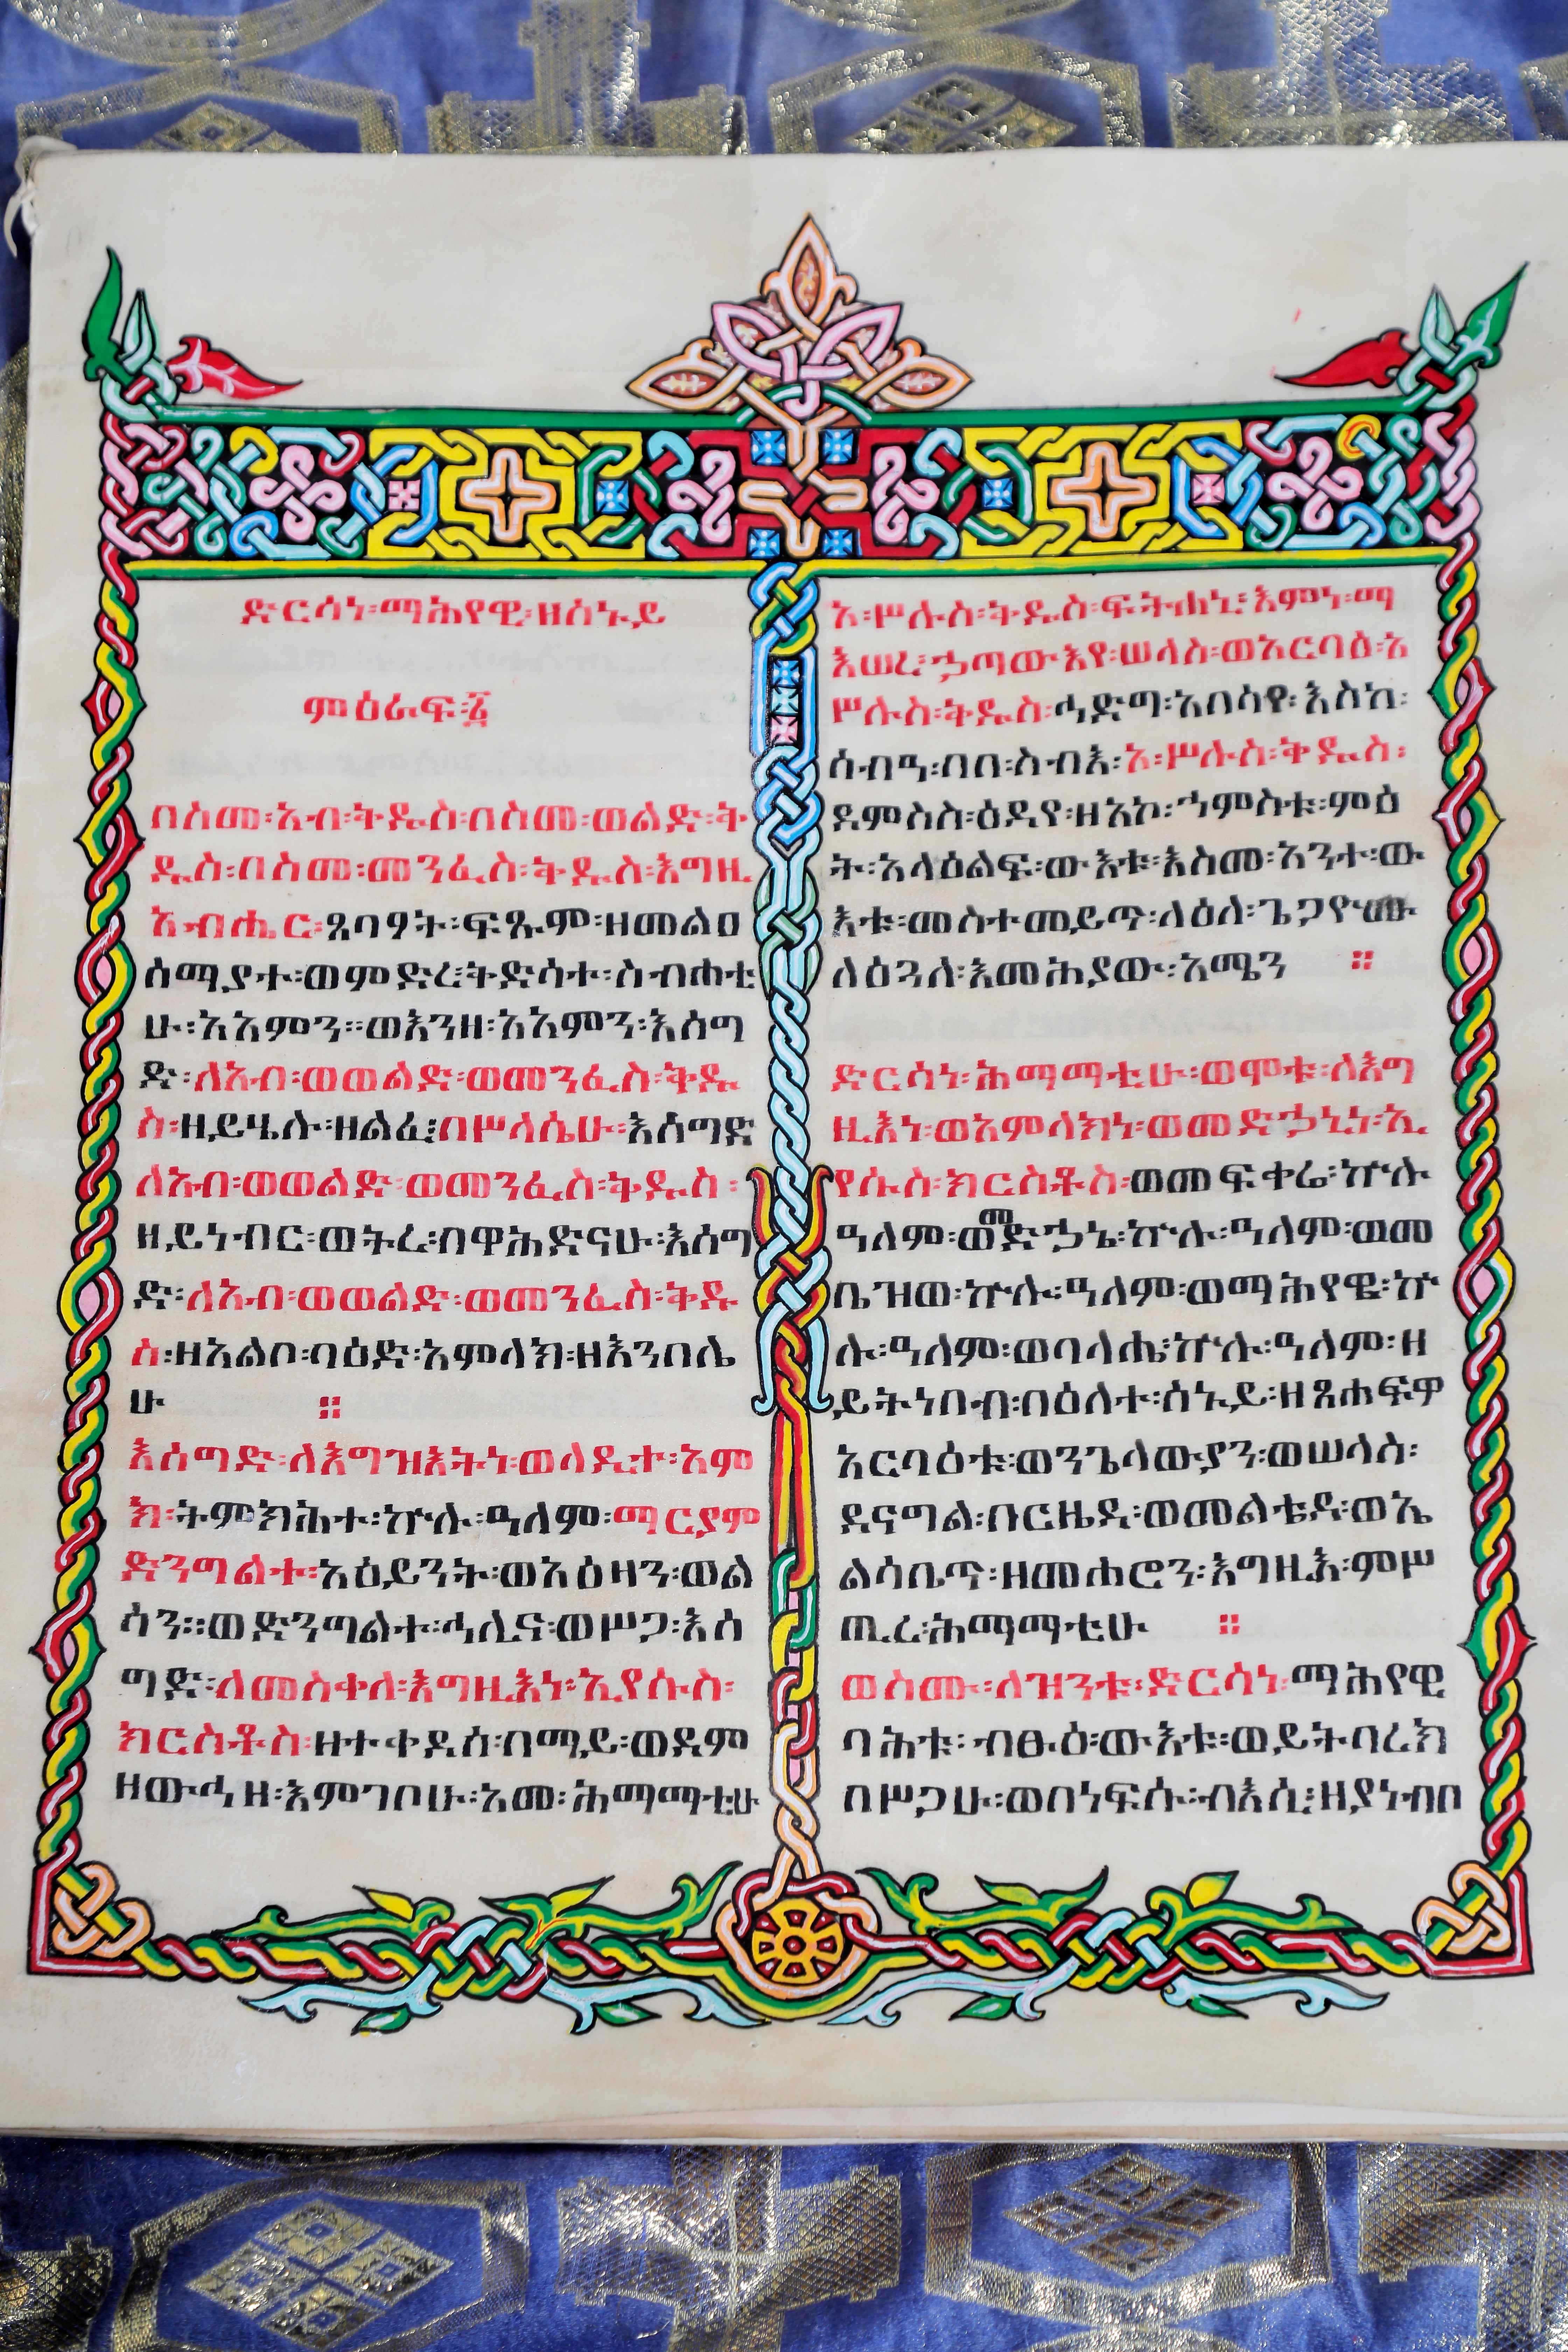 ድርሳነ፡ማሕየዊ፡ዘሰኑይ
ምዕራፍ፡፩
በስመ፡አብ፡ቅዱስ፡በስመ፡ወልድ፡ቅ
ዱስ፡በስመ፡መንፈስ፡ቅዱስ፡እግዚ
አብሔር፡ጸባዖት፡ፍጹም፡ዘመልዐ
ሰማያተ፡ወምድረ፡ቅድሳተ፡ስብሐቲ
ሁ፡አአምን።ወእንዘ፡አአምን፡እሰግ
ድ፡ለአብ፡ወወልድ፡ወመንፈስ፡ቅዱ
ስ፡ዘይሄሉ፡ዘልፈ፤በሥላሴሁ፡እሰግድ
ለአብ፡ወወልድ፡ወመንፈስ፡ቅዱስ፡
ዘይነብር፡ወትረ፡በዋሕድናሁ፡እሰግ
ድ፡ለአብ፡ወወልድ፡ወመንፈስ፡ቅዱ
ስ፡ዘአልቦ፡ባዕድ፡አምላክ፡ዘእንበሌ
ሁ ።
እሰግድ፡ለእግዝእትነ፡ወላዲተ፡አም
ክ፡ትምክሕተ፡ኵሉ፡ዓለም፡ማርያም
ድንግልተ፡አዕይንት፡ወአዕዛን፡ወል
ሳን።ወድንግልተ፡ሓሊና፡ወሥጋ፡እሰ
ግድ፡ለመስቀለ፡እግዚእነ፡ኢየሱስ፡
ክርስቶስ፡ዘተቀደሰ፡በማይ፡ወደም
ዘውሓዘ፡እምገቦሁ፡አመ፡ሕማማቲሁ
ኦ፡ሥሉስ፡ቅዱስ፡ፍትሐኒ፤እምነ፡ማ
እሠረ፡ኃጣውእየ፡ሠላስ፡ወአርባዕ፡ኦ
ሥሉስ፡ቅዱስ፡ሓድግ፡አበሳየ፡እስከ፡
ሰብዓ፡በበ፡ስብእ፡ኦ፡ሥሉስ፡ቅዱስ፡
ደምስስ፡ዕዳየ፡ዘአኮ፡ኀምስቱ፡ምዕ
ት፡አላዕልፍ፡ውእቱ፡እስመ፡አንተ፡ው
እቱ፡መስተመይጥ፡ለዕለ፡ጌጋየ
ለዕጓለ፡እመሕያው፡አሜን ።
ድርሳነ፡ሕማማቲሁ፡ወሞቱ፡ለእግ
ዚእነ፡ወአምላክነ፡ወመድኃኒነ፡ኢ
የሱስ፡ክርስቶስ፡ወመፍቀሬ፡ኵሉ
ዓለም፡ወመድኃኔ፡ኵሉ፡ዓለም፡ወመ
ቤዝወ፡ኵሉ፡ዓለም፡ወማሕየዌ፡ኵ
ሉ፡ዓለም፡ወባላሔ፡ኵሉ፡ዓለም፡ዘ
ይትነበብ፡በዕለተ፡ሰኑይ፡ዘጸሐፍዋ
አርባዕቱ፡ወንጌላውያን፡ወሠላስ፡
ደናግል፡በርዜዳ፡ወመልቴዳ፡ወኤ
ልሳቤጥ፡ዘመሐሮን፡እግዚእ፡ምሥ
ጢረ፡ሕማማቲሁ ።
ወስሙ፡ለዝንቱ፡ድርሳነ፡ማሕየዊ
ባሕቱ፡ብፁዕ፡ውእቱ፡ወይትባረክ
በሥጋሁ፡ወበነፍሱ፡ብእሲ፤ዘያነብብ